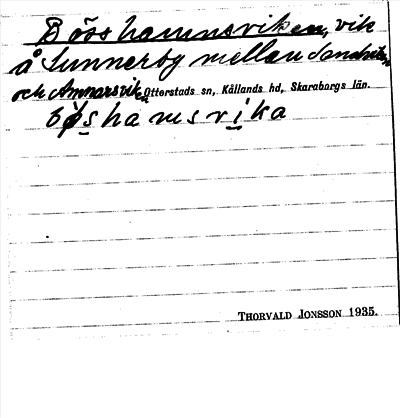 Bööshamnsviken, vik
å Sunnerby mellan Sandviken
och Annarsviken Otterstads sn, Kållands hd, Skaraborgs län.
bøshamsvika
THORVALD JONSSON 1935.